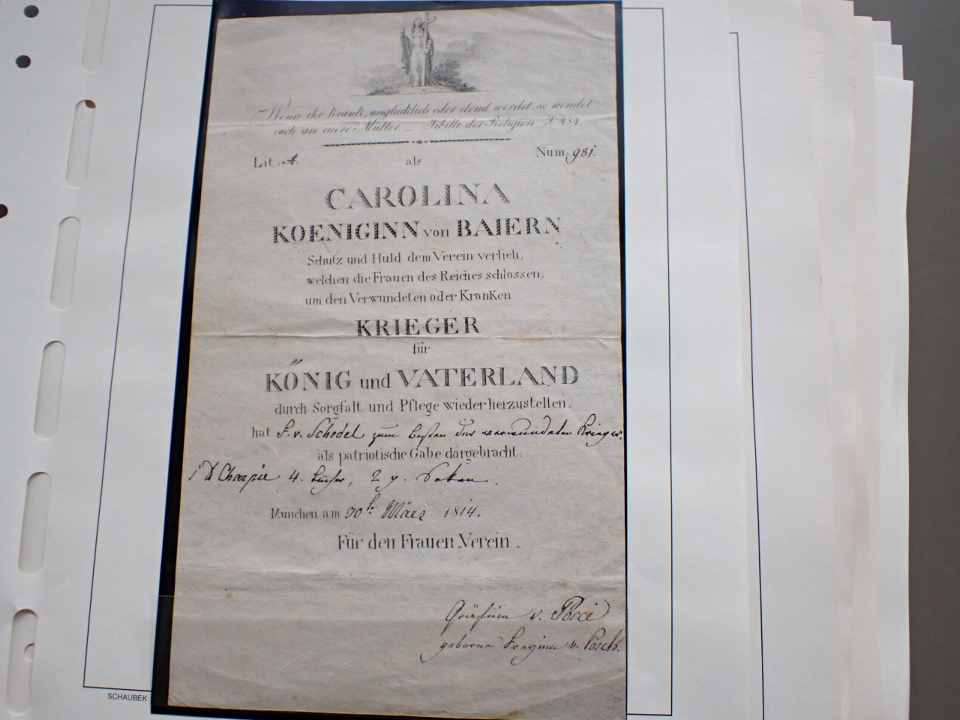 Wenn ihr krank, unglücklich oder elend werdet, so wendet
euch an eure Mutter der Religion
Lit. A. Num. 981.
als
CAROLINA
KOENIGINN von BAIERN
Schutz und Huld dem Verein verlieh,
welchen die Frauen des Reiches schlossen,
um den Verwundeten oder Kranken
KRIEGER
für
KÖNIG und VATERLAND
durch Sorgfalt und Pflege wiederherzustellen,
hat F. v. Schedel zum besten der verwundeten Krieger
als patriotische Gabe dargebracht.
Charpie 4.
München am März 1814.
Für den Frauen Verein.
Gräfinn v.
geborne v. Posch.
SCHAUBEK